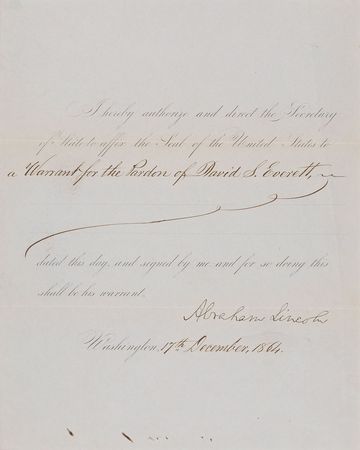 I hereby authorize and direct the Secretary
of State to affix the Seal of the United States to
a Warrant for the Pardon of David S. Everett,
dated this day, and signed by me and for so doing this
shall be his warrant.
Abraham Lincoln
Washington, 17th December, 1864.